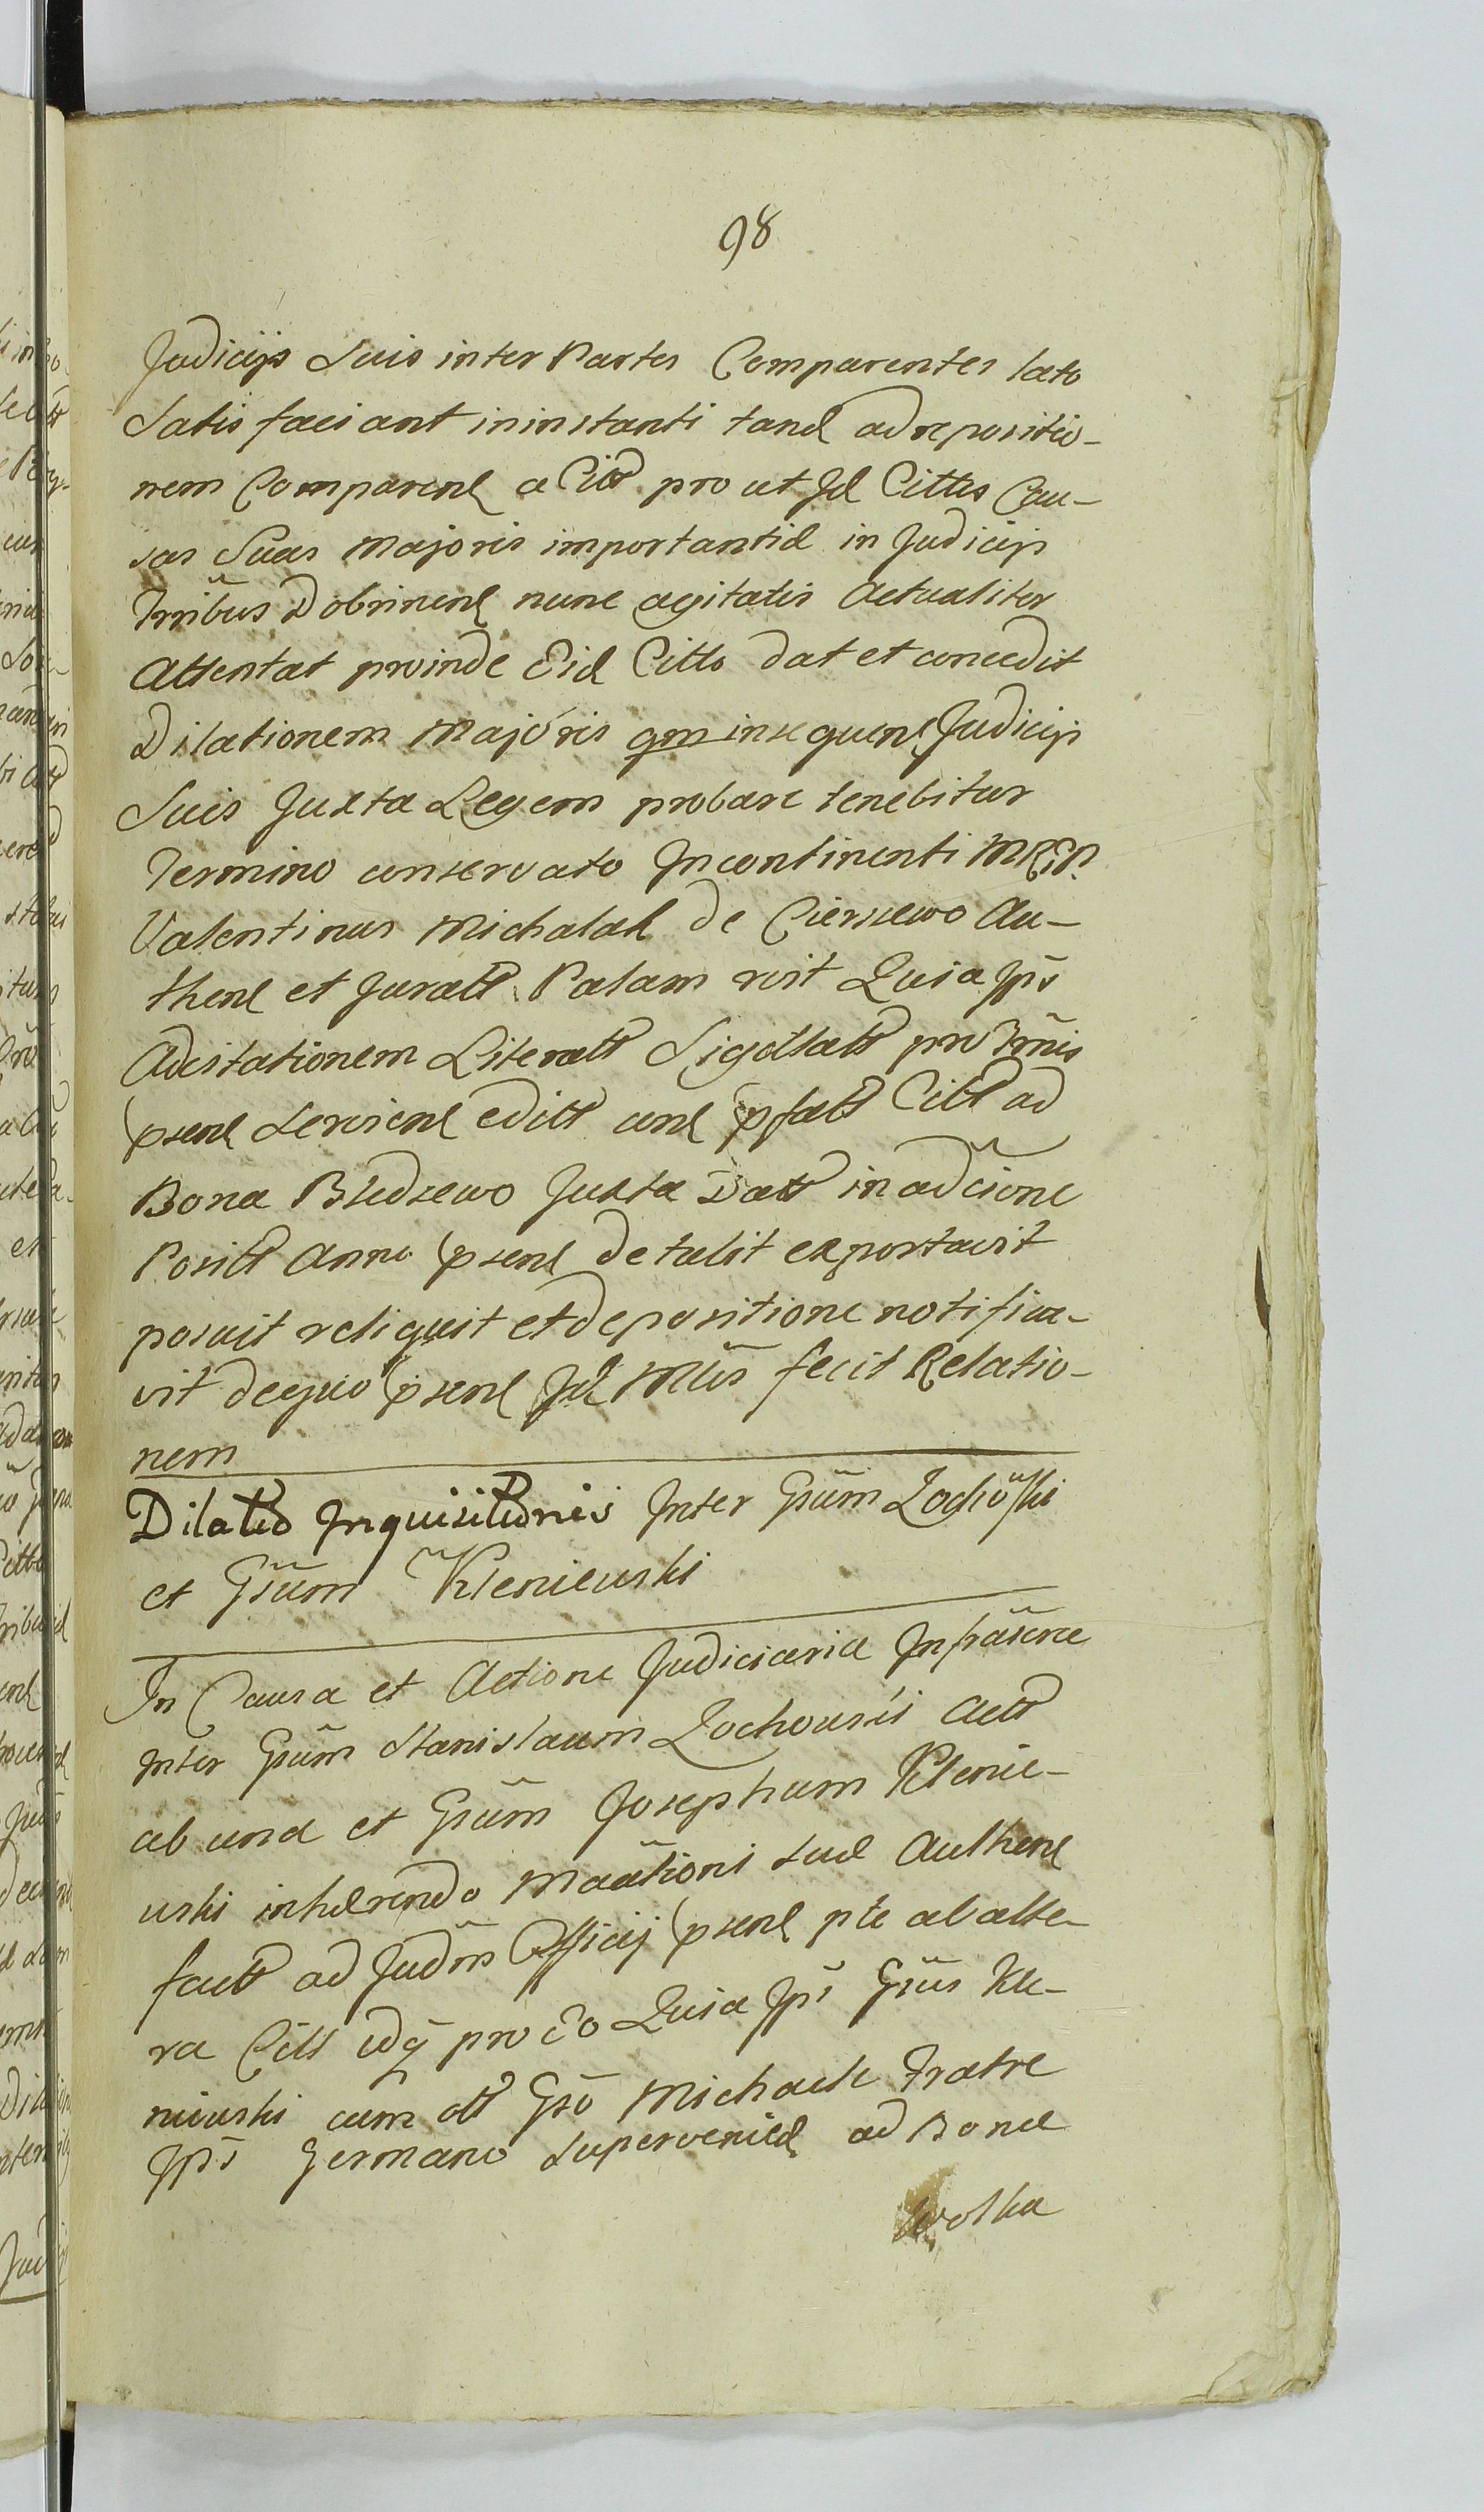 98
Judicijs Suis inter Partes Comparentes lato
Satisfaciant in instanti tand ad repositio-
nem Comparens a Citt prout Id Citts Cau-
sas Suas majoris importantiæ in Judicijs
Trribus Dobrinens nunc agitatis Actualiter
Attentat proinde Eid Citto dat et concedit
Dilationem Majoris qm insequens Judicijs
Suis Juxta Legem probare tenebitur
Termino conservato Incontinenti MREP.
Valentinus Michalak de Cierszewo Au-
thens et Juratt Palam rvit Quia Ips
Adcitationem Literatt Sigillatt pro Trmis
psens serviens editt cons pfatt Citt ad
Bona Bledzewo Juxta Datt in adcione
Positt Anno psens detulit exportavit
posuit reliquit et depositione notifica-
vit dequo psens Id Mtlis fecit Relatio-
nem
Dilatio Inquisitionis Inter Gsum Zochowski
et Gsum Kleniewski
In Causa et Actione Judiciaria Infrascre
Inter Gsum Stanislaum Zochowski Actt
ab una et Gsum Josephum Klenie-
wski inhærendo Maationi suæ Authens
factt ad Judm Officij psens pte ab alte-
ra Citt idq pro Eo Quia Ips Gsus Kle-
niewski cum ott Gso Michaele Fratre
Ips Germano superveniens ad Bona
Wolka